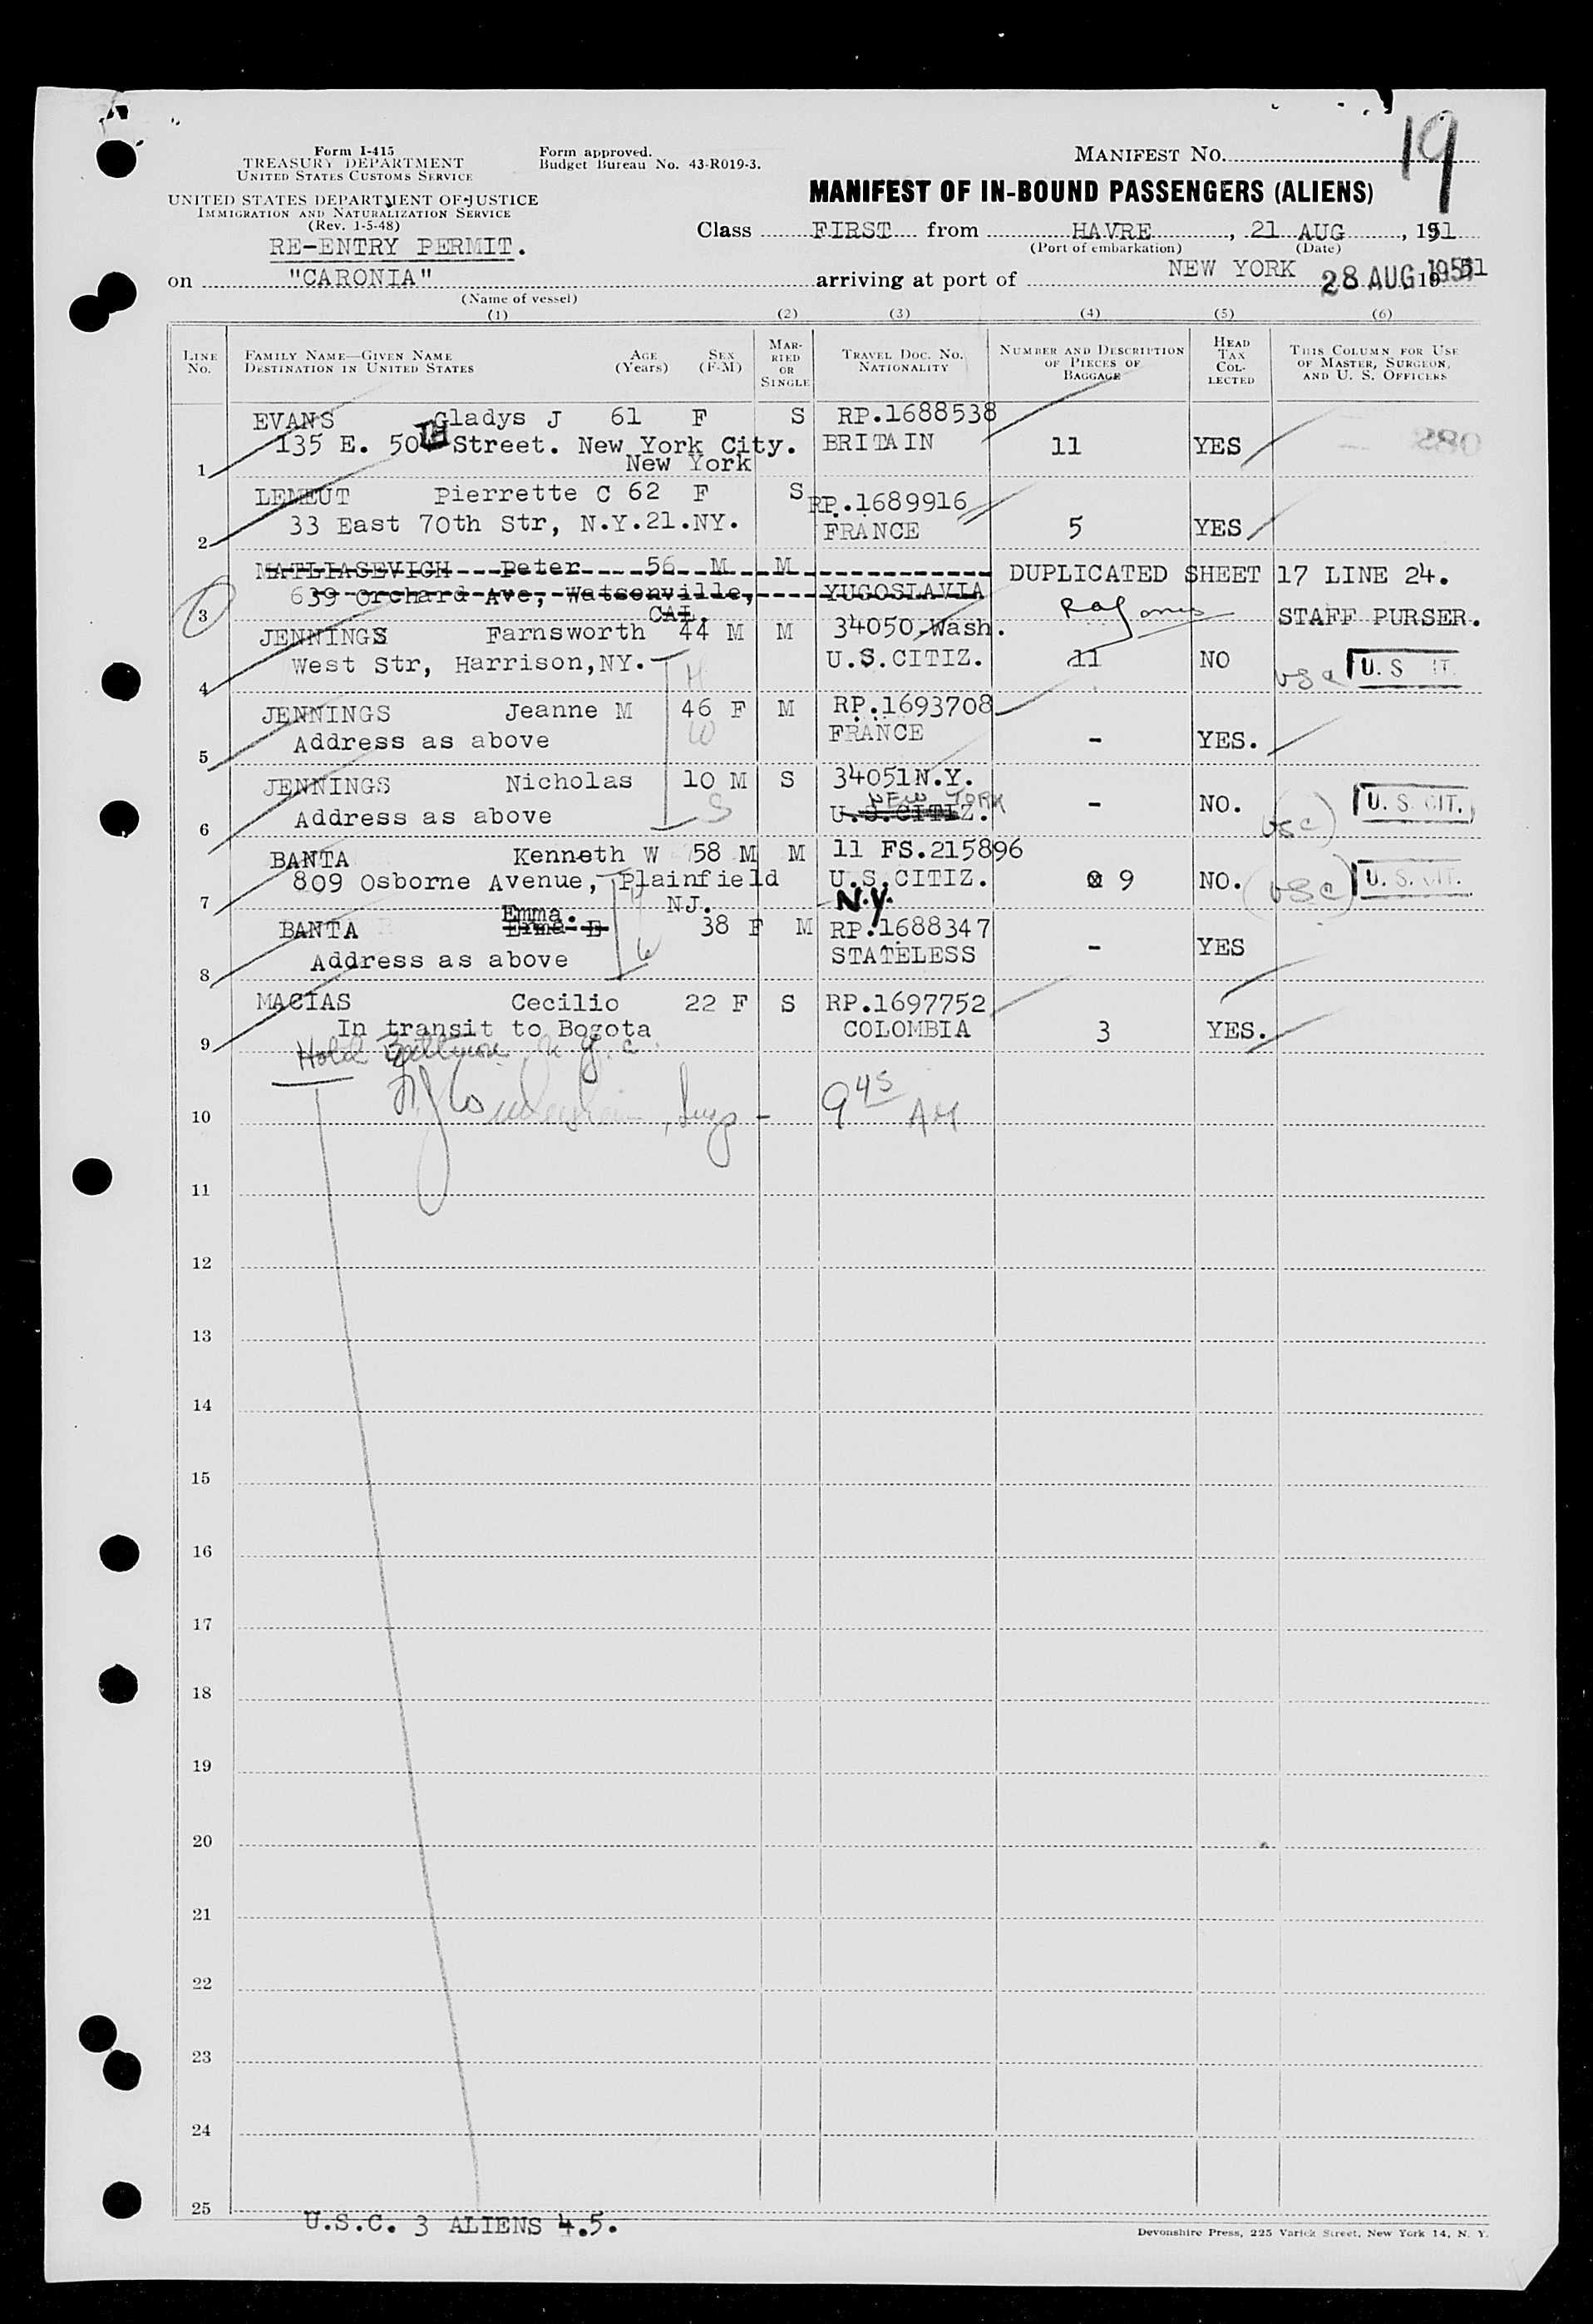 19
Form I-415
TREASURY DEPARTMENT
UNITED STATES CUSTOMS SERVICE
Form approved.
Budget Bureau No. 43-R019-3.
MANIFEST No.
UNITED STATES DEPARTMENT OF JUSTICE
IMMIGRATION AND NATURALIZATION SERVICE
(Rev. 1-5-48)
MANIFEST OF IN-BOUND PASSENGERS (ALIENS)
RE-ENTRY PERMIT.
Class FIRST from HAVRE, 21 AUG, 1951
(Port of embarkation) (Date)
on "CARONIA" arriving at port of NEW YORK 28 AUG 1951
(Name of vessel)
(1) (2) (3) (4) (5) (6)
LINE No. FAMILY NAME—GIVEN NAME DESTINATION IN UNITED STATES AGE (Years) SEX (F-M) MARRIED OR SINGLE TRAVEL DOC. NO. NATIONALITY NUMBER AND DESCRIPTION OF PIECES OF BAGGAGE HEAD TAX COLLECTED THIS COLUMN FOR USE OF MASTER, SURGEON, AND U. S. OFFICERS
EVANS Gladys J 61 F S RP.1688538
135 E. 50TH Street. New York City. BRITAIN 11 YES
1 New York
LEMEUT Pierrette C 62 F S RP.1689916
2 33 East 70th Str, N.Y.21.NY. FRANCE 5 YES
MATLIASEVICH Peter 56 M M DUPLICATED SHEET 17 LINE 24.
3 639 Orchard Ave, Watsonville, YUGOSLAVIA STAFF PURSER.
CAL.
JENNINGS Farnsworth 44 M M 34050.Wash.
4 West Str, Harrison,NY. H U.S.CITIZ. 11 NO usc U.S. IT.
JENNINGS Jeanne M 46 F M RP.1693708
5 Address as above W FRANCE - YES.
JENNINGS Nicholas 10 M S 34051N.Y.
NEW YORK
6 Address as above S U.S.CITIZ. - NO. usc U. S. CIT.
BANTA Kenneth W 58 M M 11 FS.215896
7 809 Osborne Avenue, Plainfield H U.S.CITIZ. 9 NO. usc U. S. CIT.
NJ. N.Y.
Emma.
BANTA Erma E 38 F M RP.1688347
8 Address as above W STATELESS - YES
MACIAS Cecilio 22 F S RP.1697752
9 In transit to Bogota COLOMBIA 3 YES.
Hotel Biltmore N.Y.C.
10 , Insp - 9 45 AM
11
12
13
14
15
16
17
18
19
20
21
22
23
24
25
U.S.C. 3 ALIENS 4.5.
Devonshire Press, 225 Varick Street, New York 14, N. Y.